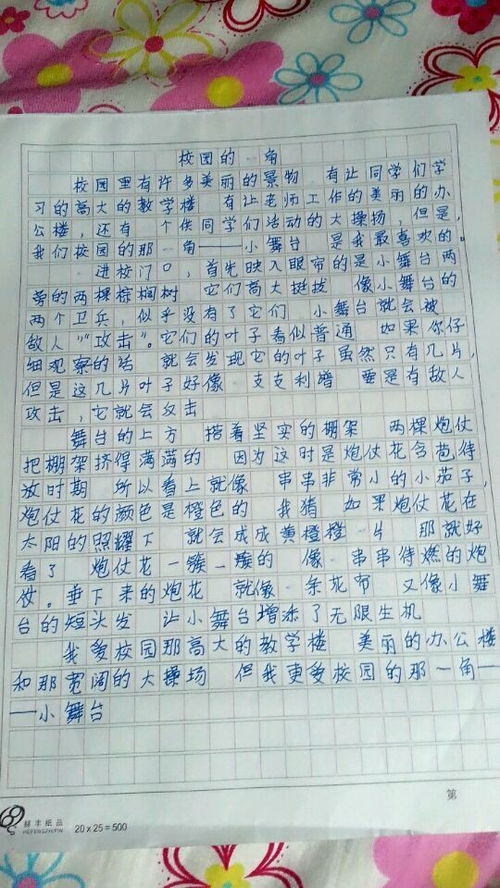 校园的一角
校园里有许多美丽的景物 有让同学们学
习的高大的教学楼 有让老师工作的美丽的办
公楼，还有 个供同学们活动的大操场，但是，
我们校园的那一角——小舞台 是我最喜欢的。
进校门口，首先映入眼帘的是小舞台两
旁的两棵棕榈树 它们高大挺拔 像小舞台的
两个卫兵，似乎没有了它们 小舞台就会被
敌人"攻击"。它们的叶子看似普通 如果你仔
细观察的话 就会发现它的叶子虽然只有几片，
但是这几片叶子好像 支支利 要是有敌人
攻击，它就会反击
舞台的上方 搭着坚实的棚架 两棵炮仗
把棚架挤得满满的 因为这时是炮仗花含苞待
放时期 所以看上就像 串串非常小的小茄子，
炮仗花的颜色是橙色的 我猜 如果炮仗花在
太阳的照耀下 就会成成黄橙橙一片 那就好
看了 炮仗花一簇一簇的 像一串串待燃的炮
仗。垂下来的炮花 就像一条花布 又像小舞
台的短头发 让小舞台增添了无限生机
我爱校园那高大的教学楼 美丽的办公楼
和那宽阔的大操场 但我更爱校园的那一角—
—小舞台
第
20x25=500